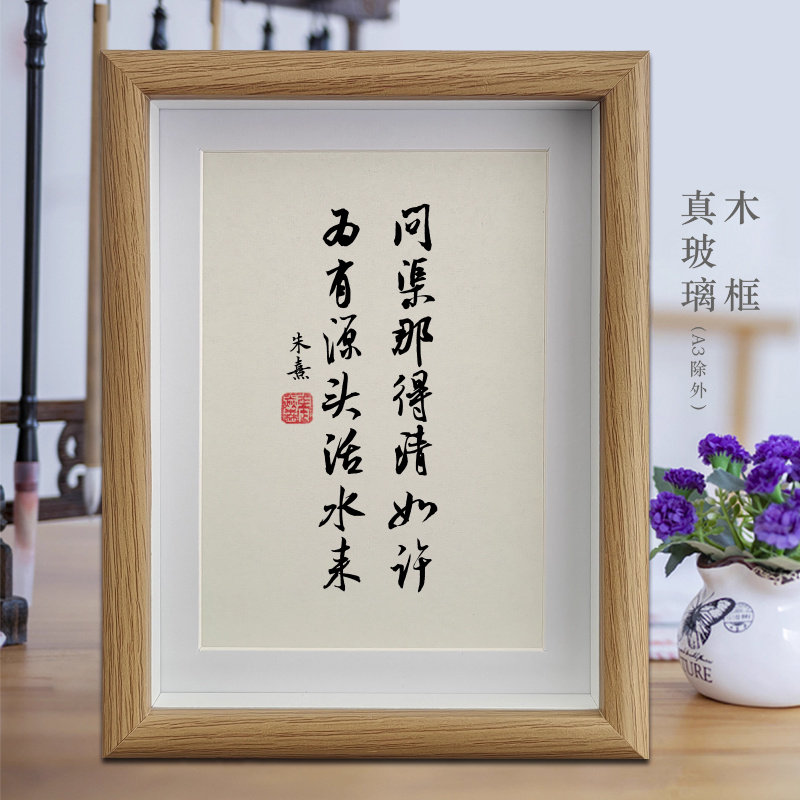 问渠那得清如许
为有源头活水来
朱熹
木框
真玻璃(A3除外)
TURE